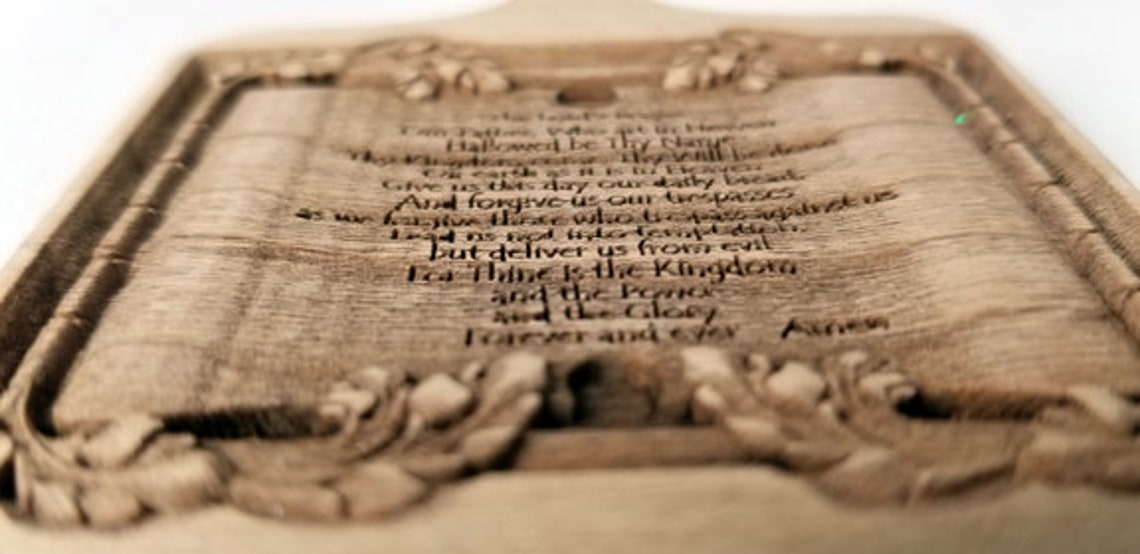 The Lord's Prayer
Our Father, Who art in Heaven
Hallowed be Thy Name
Thy Kingdom come, Thy Will be done
On earth as it is in Heaven
Give us this day our daily bread
And forgive us our trespasses
As we forgive those who trespass against us
Lead us not into temptation
but deliver us from evil
For Thine is the Kingdom
and the Power
and the Glory
Forever and ever Amen